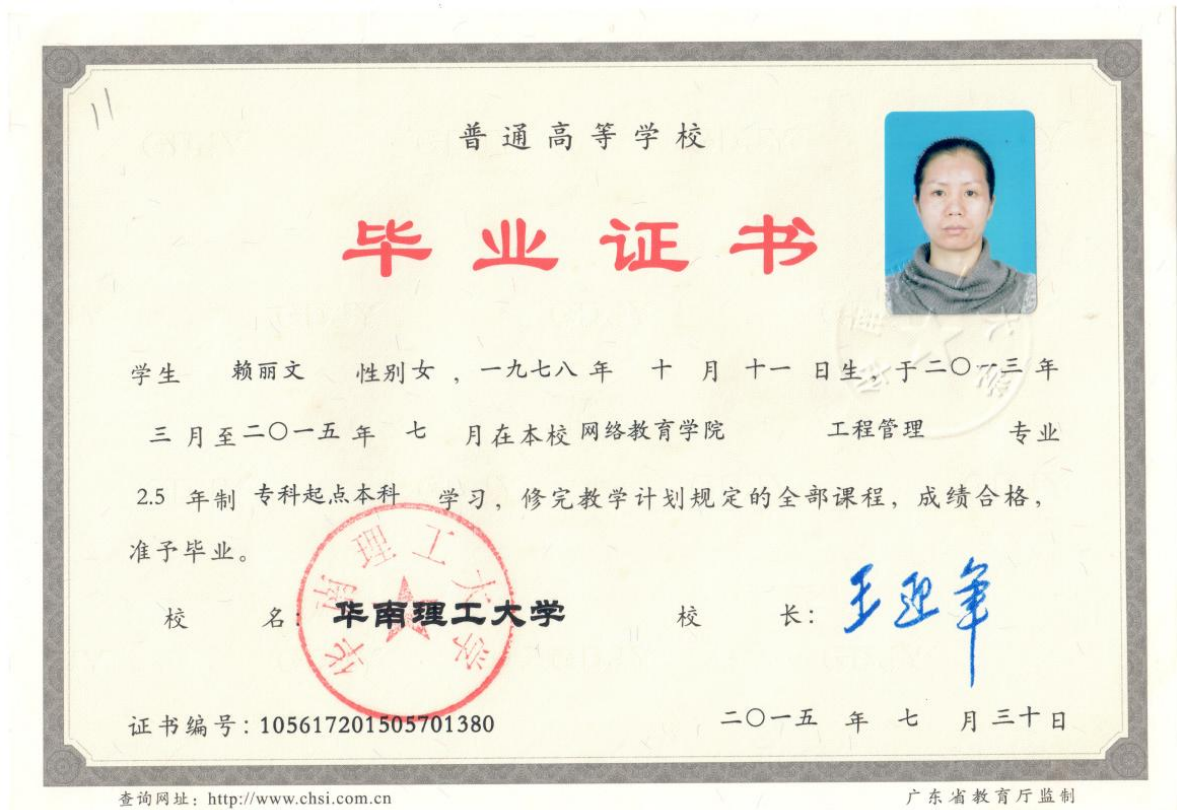 11
普通高等学校
毕业证书
学生 赖丽文 性别女，一九七八年 十 月 十一 日生，于二〇一三年
三 月至二〇一五年 七 月在本校 网络教育学院 工程管理 专业
2.5 年制 专科起点本科 学习，修完教学计划规定的全部课程，成绩合格，
准予毕业。
校 名：华南理工大学 校 长：王迎军
华南理工大学
证书编号：105617201505701380 二〇一五 年 七 月三十日
查询网址：http://www.chsi.com.cn 广东省教育厅监制